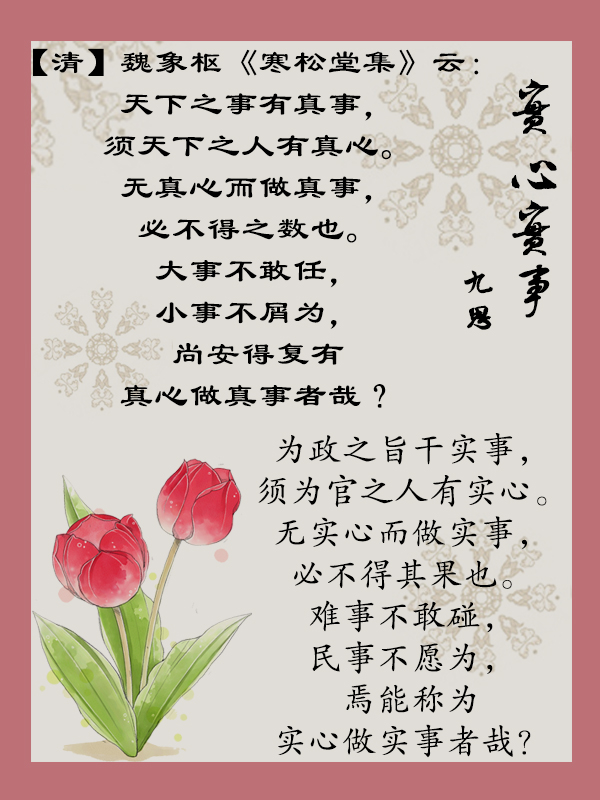 【清】魏象枢《寒松堂集》云：
天下之事有真事，
须天下之人有真心。
无真心而做真事，
必不得之数也。
大事不敢任，
小事不屑为，
尚安得复有
真心做真事者哉？
實心實事
九思
为政之旨干实事，
须为官之人有实心。
无实心而做实事，
必不得其果也。
难事不敢碰，
民事不愿为，
焉能称为
实心做实事者哉？